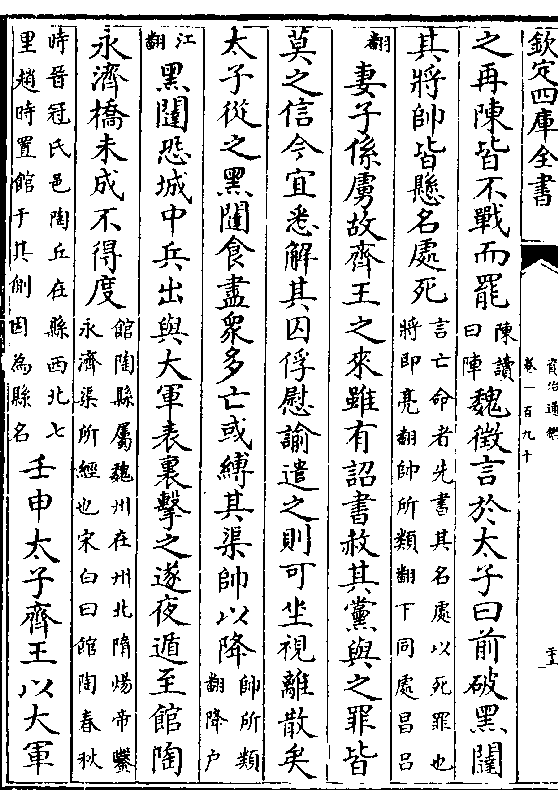 欽定四庫全書
資治通鑑
卷一百九十
之再陳皆不戰而罷陳讀曰陣魏徵言於太子曰前破黑闥
其將帥皆懸名處死言亡命者先書其名處以死罪也將即亮翻帥所類翻下同處昌呂
翻妻子係虜故齊王之來雖有詔書赦其黨與之罪皆
莫之信今宜悉解其囚俘慰諭遣之則可坐視離散矣
太子從之黑闥食盡衆多亡或縛其渠帥以降帥所類翻降户
江翻黑闥恐城中兵出與大軍表裏擊之遂夜遁至館陶
永濟橋未成不得度館陶縣屬魏州在州北隋煬帝鑿永濟渠所經也宋白曰館陶春秋
時晉冠氏邑陶丘在縣西北七里趙時置館于其側因為縣名壬申太子齊王以大軍